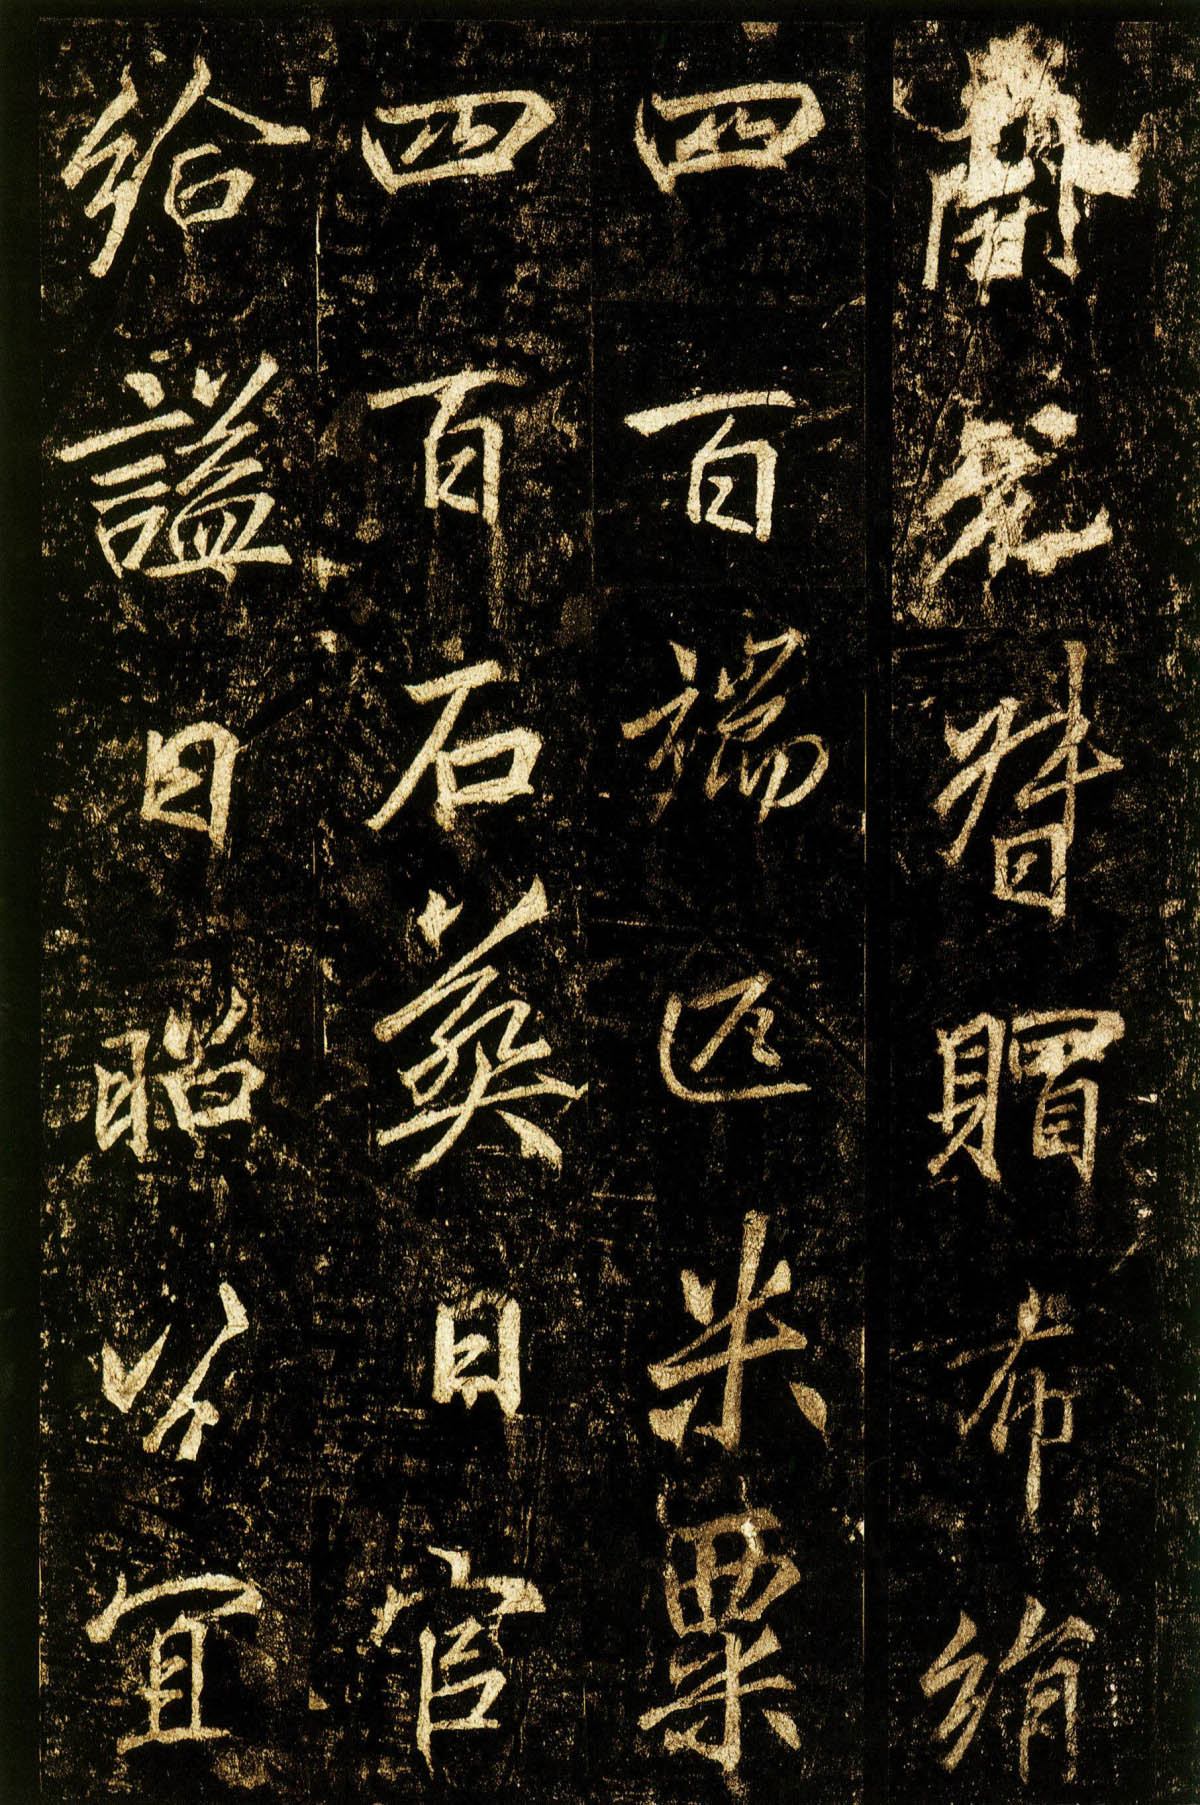 督賵布絹
四百端匹米粟
四百石葬日官
給謚曰昭公宜